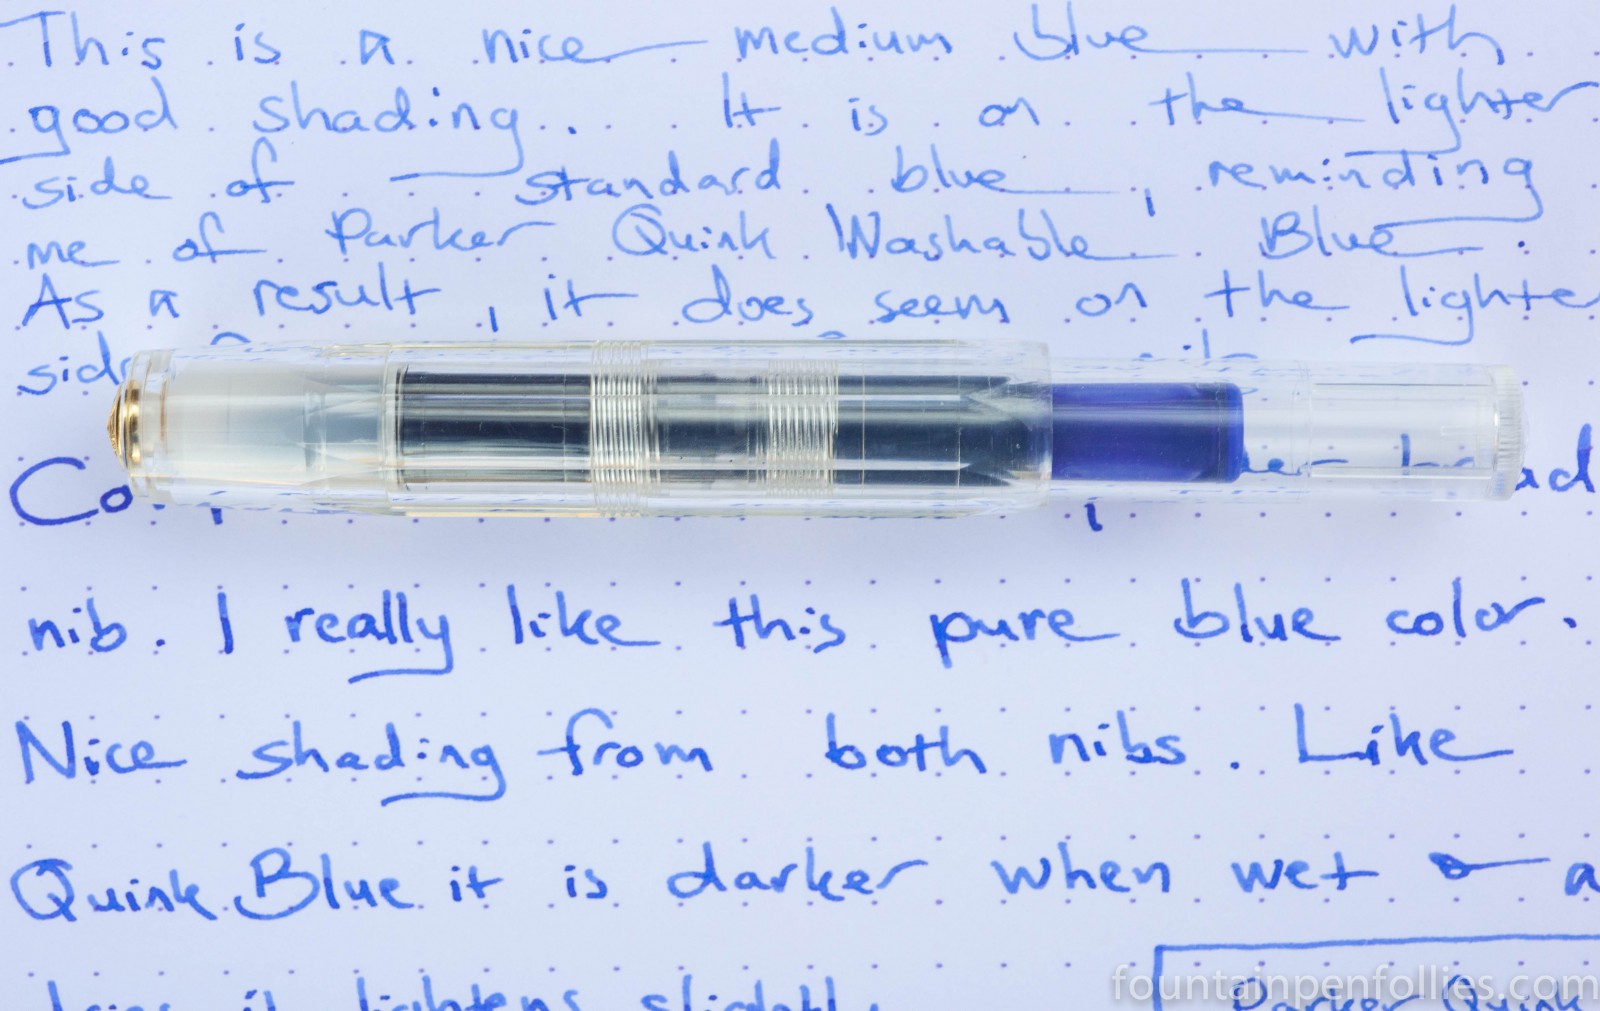 This is a nice medium blue with
good shading. It is on the lighter
side of standard blue, reminding
me of Parker Quink Washable Blue.
As a result, it does seem on the lighte
side
nib. I really like this pure blue color.
Nice shading from both nibs. Like
Quink Blue it is darker when wet a
it lightens slightly
Parker Quink
fountainpenfollies.com